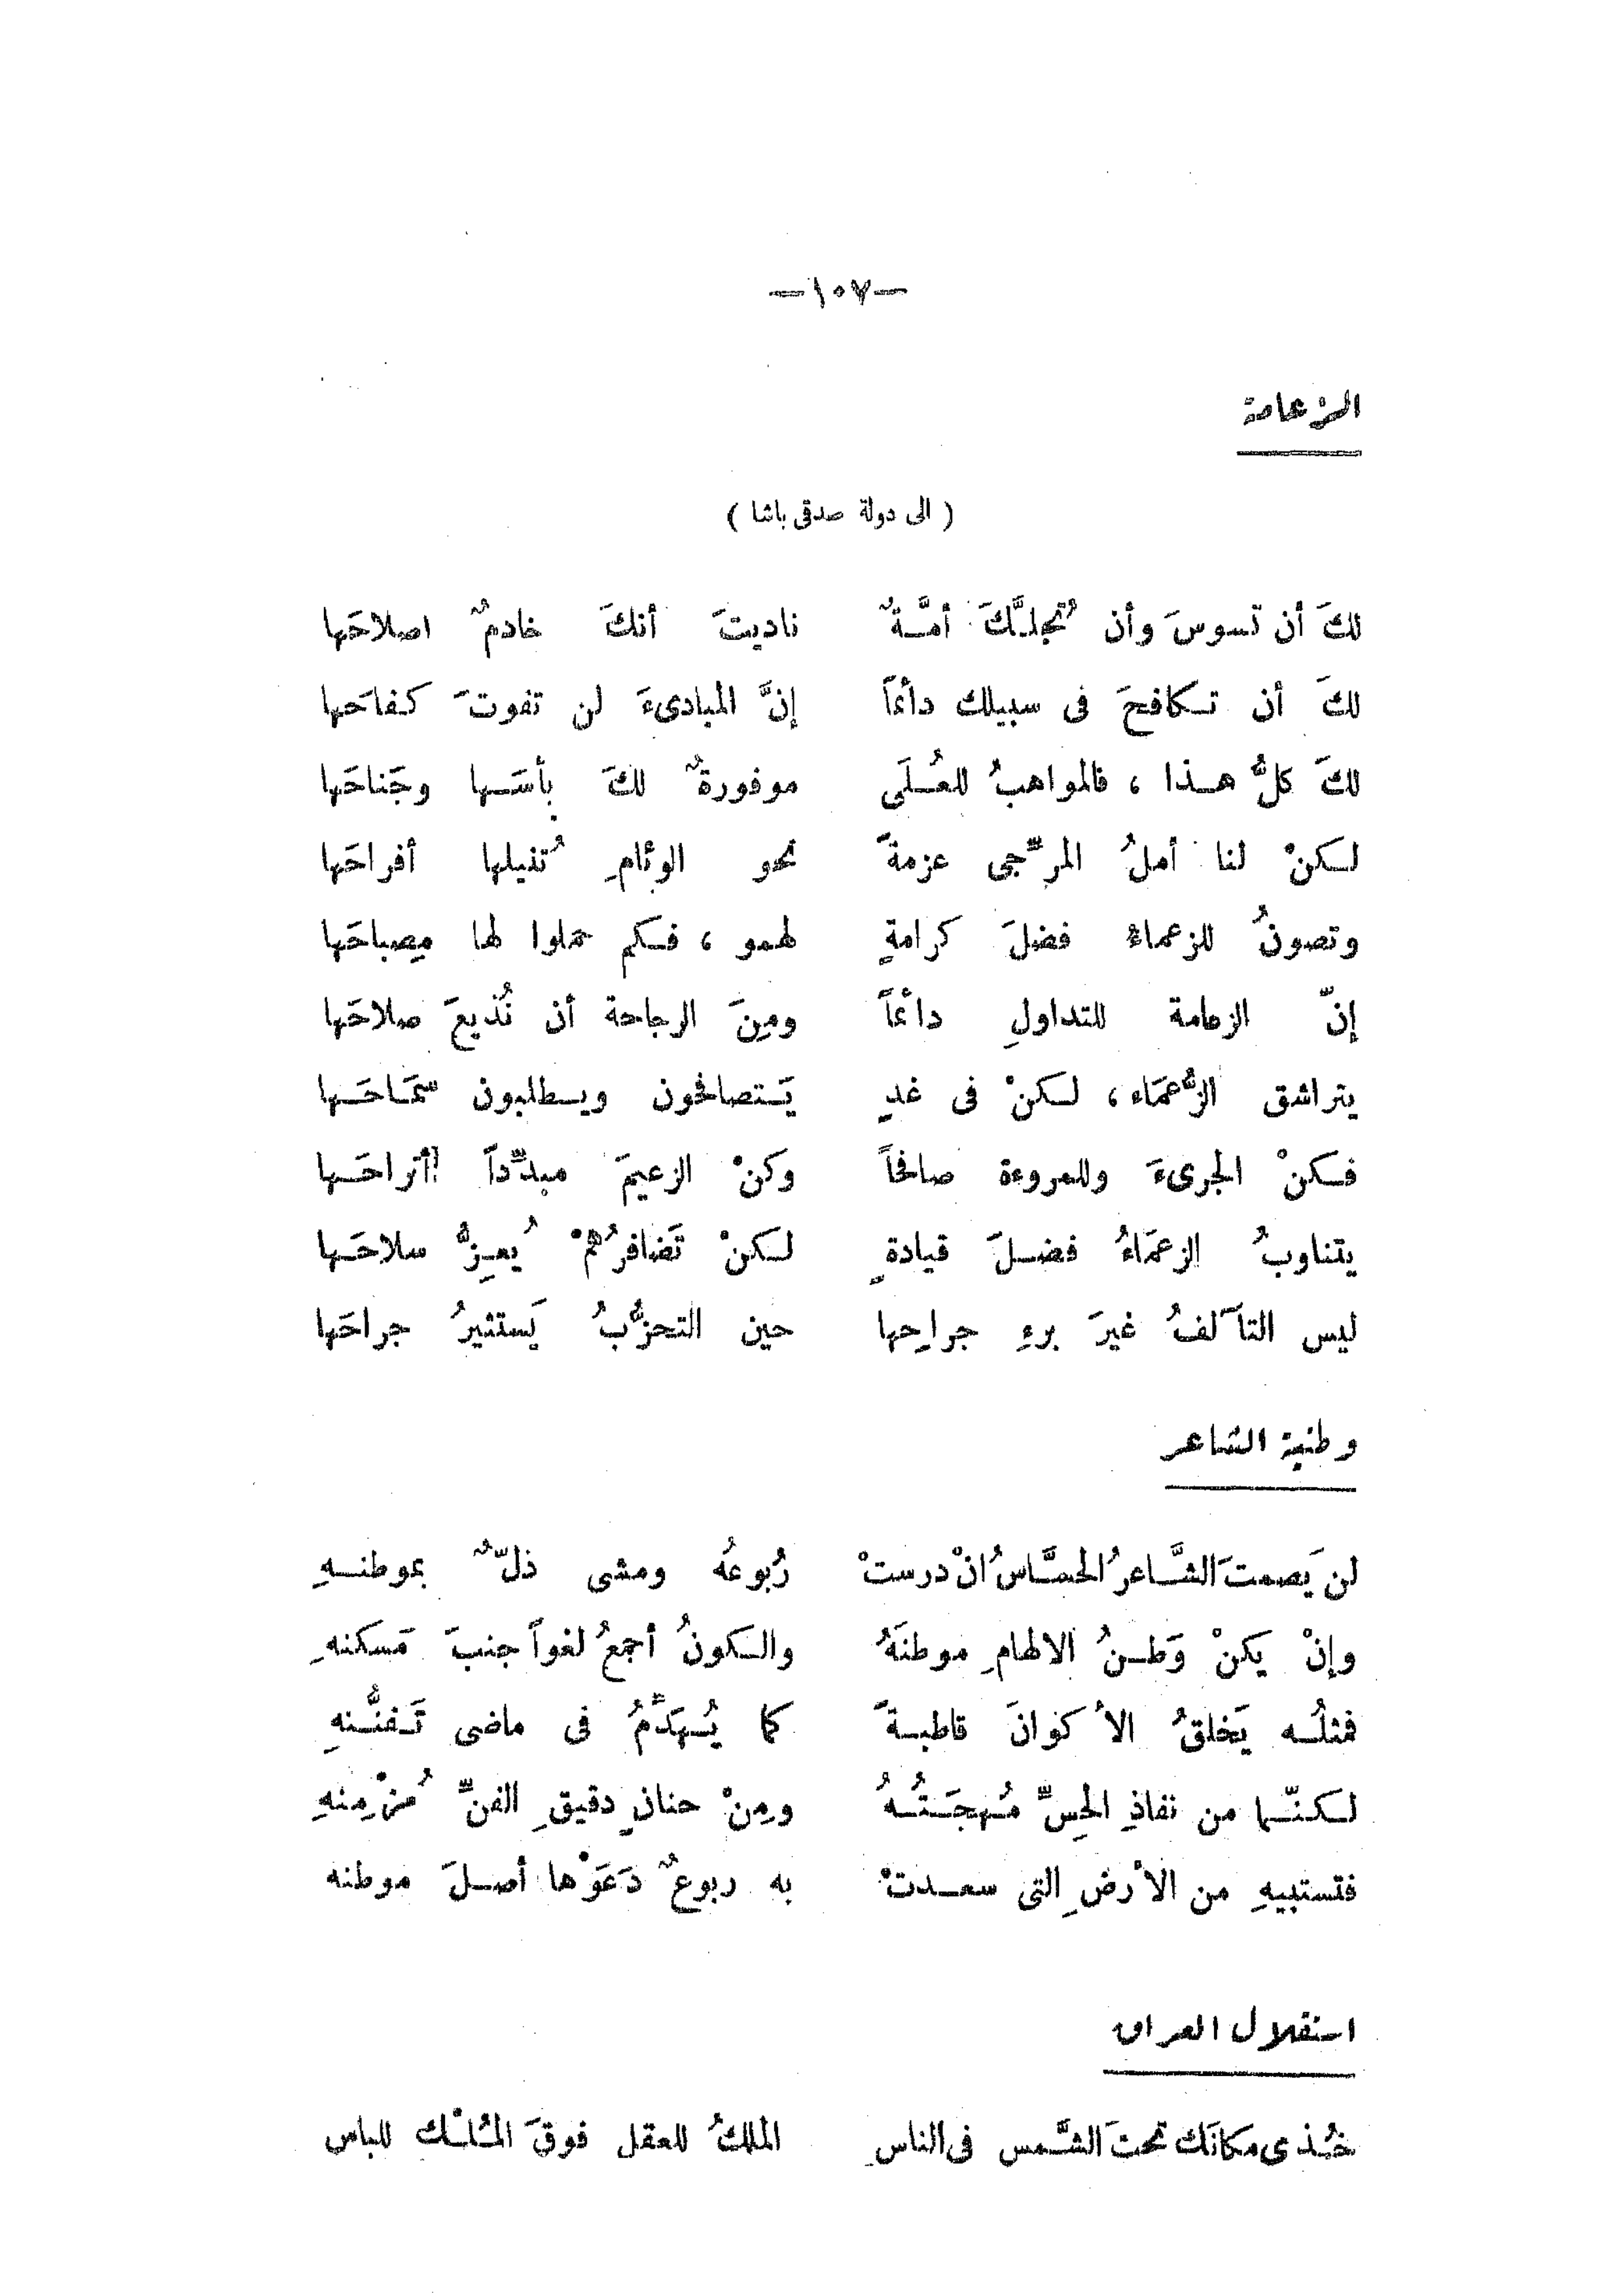 —١٠٧—
الزعامة
( الى دولة صدقى باشا )
لكَ أن تسوسَ وأن تُجلَّكَ أمَّةٌ ناديتَ أنكَ خادمٌ اصلاحَها
لكَ أن تكافحَ فى سبيلك دائماً إنَّ المبادىءَ لن تفوتَ كفاحَها
لكَ كلُّ هذا ، فالمواهبُ للعُلَى موفورةٌ لكَ بأسَها وجَناحَها
لكنْ لنا أملُ المرجِّى عزمةً نحو الوئامِ تُنيلها أفراحَها
وتصونُ للزعماءِ فضلَ كرامةٍ لهمو ، فكم حملوا لها مِصباحَها
إنّ الزعامة للتداولِ دائماً ومِنَ الرجاحة أن نُذيعَ صلاحَها
يتراشق الزُّعمَاء ، لكنْ فى غدٍ يَتصافحون ويطلبون سَمَاحَها
فكنْ الجرىءَ وللمروءة صافحاً وكنْ الزعيمَ مبدِّداً أتراحَها
يتناوبُ الزعمَاءُ فضلَ قيادةٍ لكنْ تَضافرُهُمْ يُعِزُّ سلاحَها
ليس التآلفُ غيرَ برءِ جراحِها حين التحزُّبُ يَستثيرُ جراحَها
وطنية الشاعر
لن يَصمتَ الشَّاعرُ الحسَّاسُ انْ درستْ رُبوعُه ومشى ذلٌّ بموطنهِ
وإنْ يكنْ وَطنُ الالهامِ موطنَهُ والكونُ أجمعُ لغواً جنبَ مَسكنهِ
فمثلُه يَخلقُ الأكوانَ قاطبةً كما يُهَدِّمُ فى ماضى تَفنُّنهِ
لكنّما من نفاذِ الحِسِّ مُهجَتُهُ ومِنْ حنانٍ دقيقِ الفنِّ مُزْمِنهِ
فتستبيهِ من الأرضِ التى سعدتْ به ربوعٌ دَعَوْها أصلَ موطنه
استقلال العراق
خُذى مكانَك تحتَ الشَّمس فى الناسِ الملكُ للعقل فوقَ المُلْك للباس